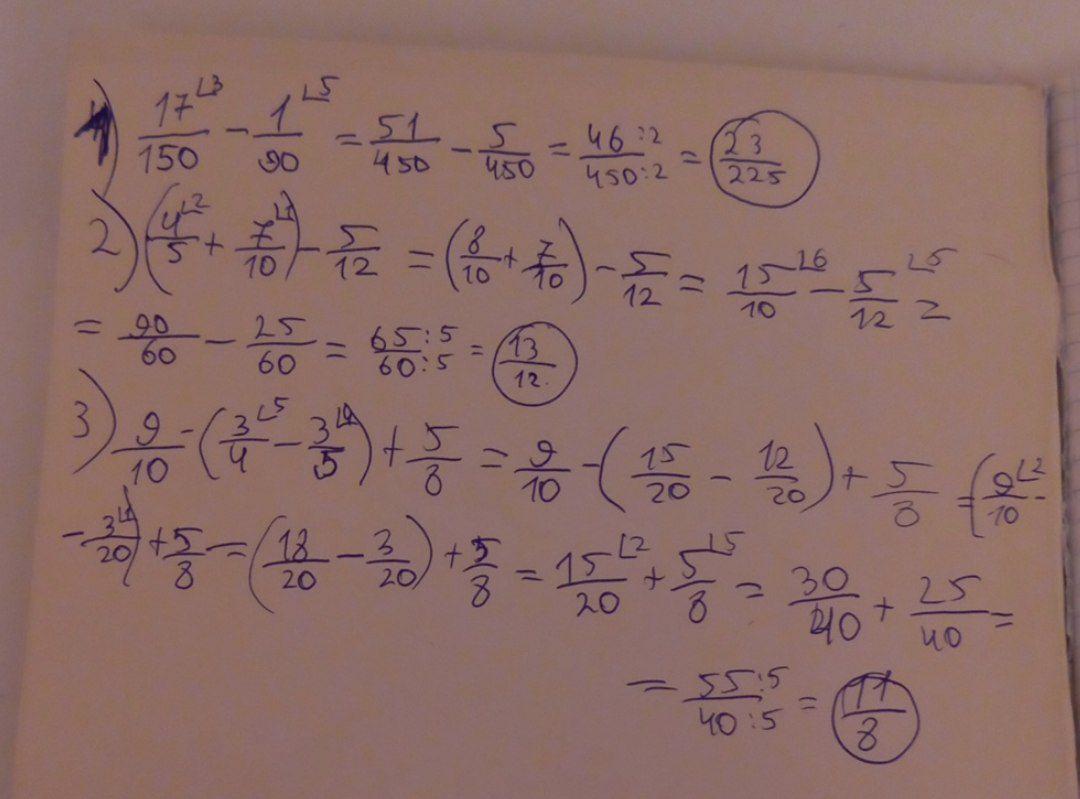 1) 17/150 ⌊3 − 1/90 ⌊5 = 51/450 − 5/450 = 46:2/450:2 = 23/225
2) (4/5 ⌊2 + 7/10 ⌊1) − 5/12 = (8/10 + 7/10) − 5/12 = 15/10 ⌊6 − 5/12 ⌊5 =
= 90/60 − 25/60 = 65:5/60:5 = 13/12
3) 9/10 − (3/4 ⌊5 − 3/5 ⌊4) + 5/8 = 9/10 − (15/20 − 12/20) + 5/8 = (9/10 ⌊2 −
− 3/20 ⌊1) + 5/8 = (18/20 − 3/20) + 5/8 = 15/20 ⌊2 + 5/8 ⌊5 = 30/40 + 25/40 =
= 55:5/40:5 = 11/8